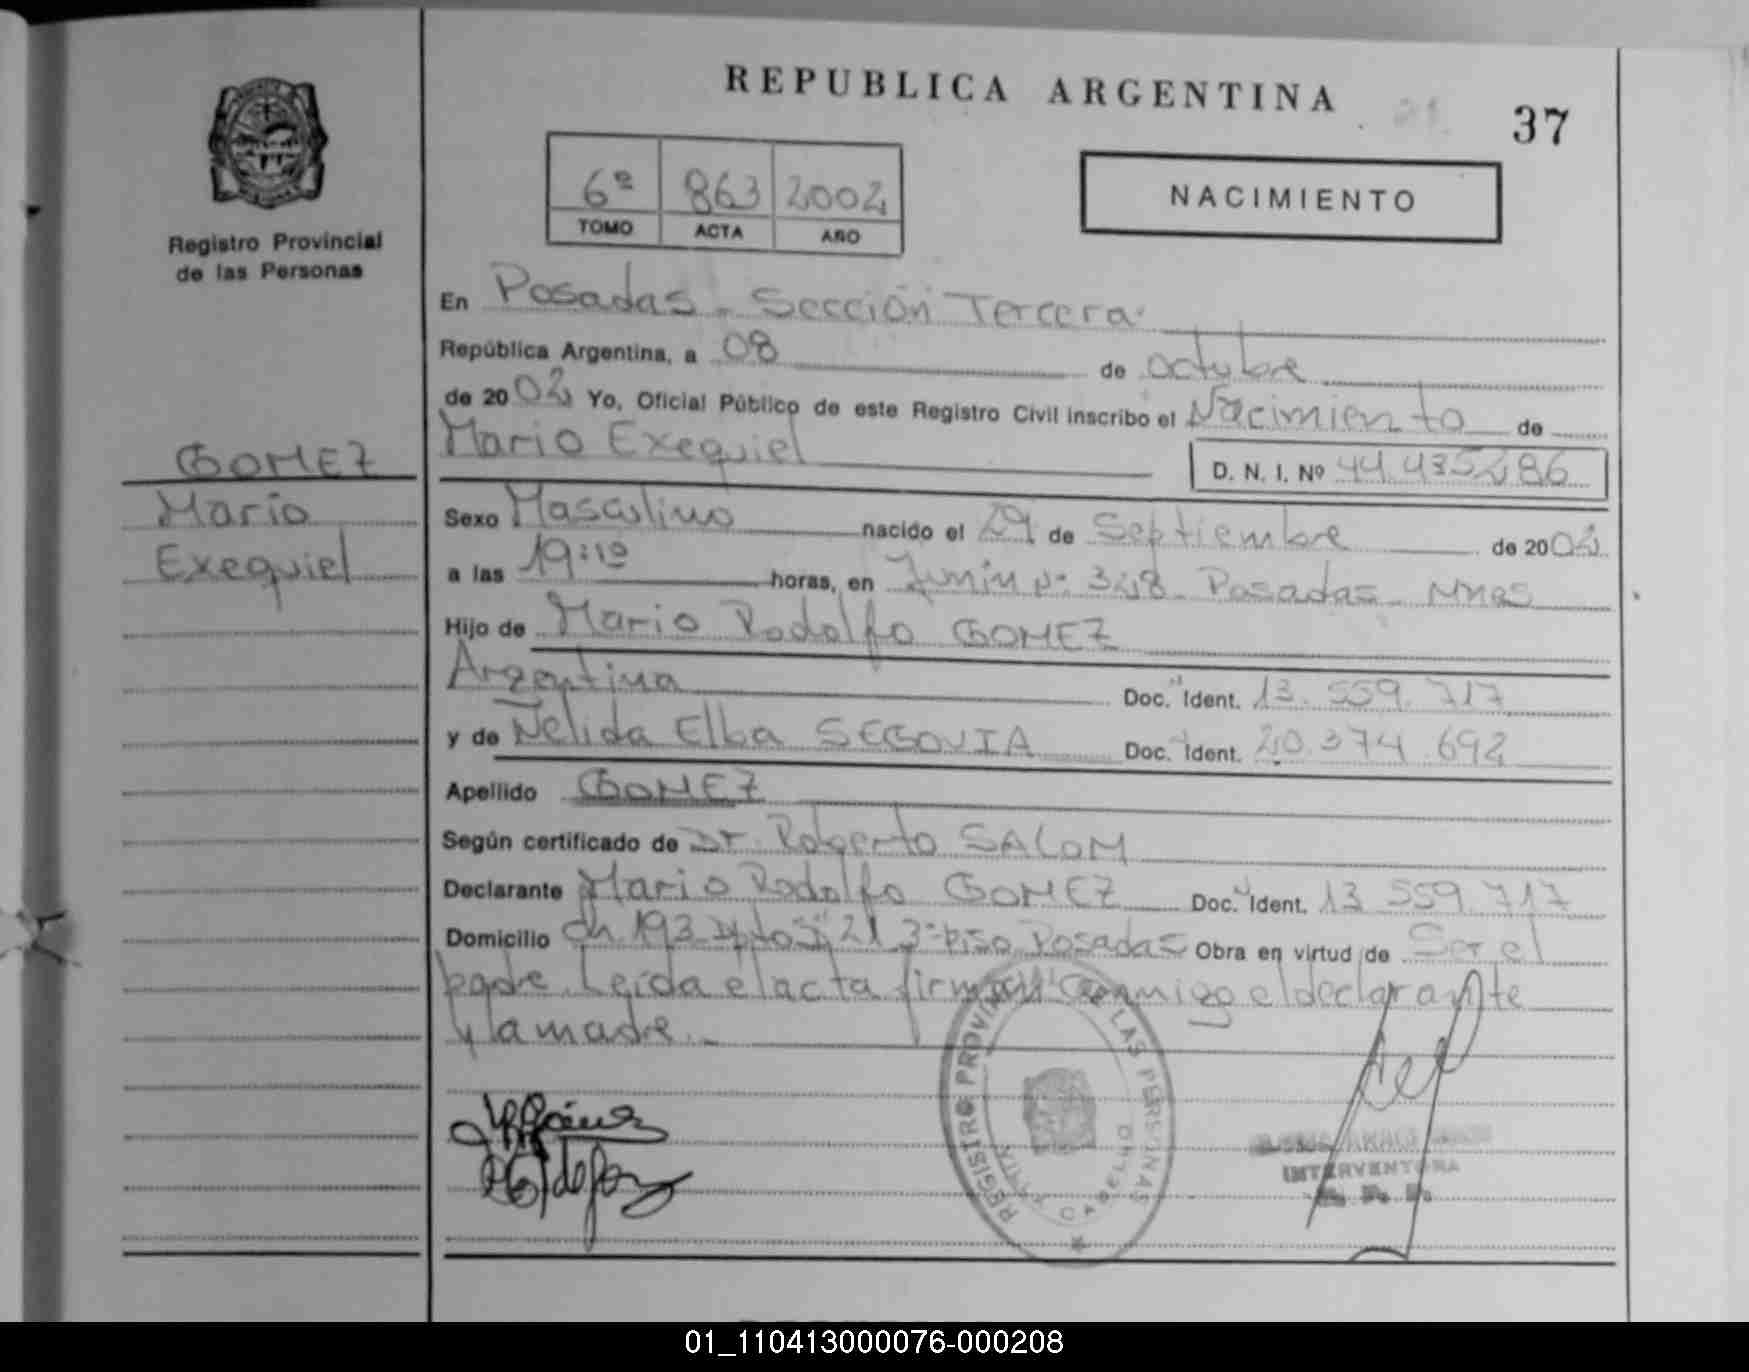 REPUBLICA ARGENTINA
37
Registro Provincial
de las Personas
6º 863 2002
TOMO ACTA AÑO
NACIMIENTO
En Posadas - Sección Tercera
República Argentina, a 08 de octubre
de 2002 Yo, Oficial Público de este Registro Civil inscribo el Nacimiento de
Mario Exequiel D. N. I. Nº 44.435.286
GOMEZ
Mario
Exequiel
Sexo Masculino nacido el 29 de Septiembre de 2002
a las 19:10 horas, en Junín Nº 328 - Posadas - Mnes
Hijo de Mario Rodolfo GOMEZ
Argentina Doc. Ident. 13.559.717
y de Nelida Elba SEGOVIA Doc. Ident. 20.374.692
Apellido GOMEZ
Según certificado de Dr. Roberto SALOM
Declarante Mario Rodolfo GOMEZ Doc. Ident. 13 559.717
Domicilio Ch 193 21 3º piso Posadas Obra en virtud de Ser el
padre. Leída el acta firman conmigo el declarante
y la madre.-
REGISTRO PROVINCIAL DE LAS PERSONAS
INTERVENTORA
01_110413000076-000208